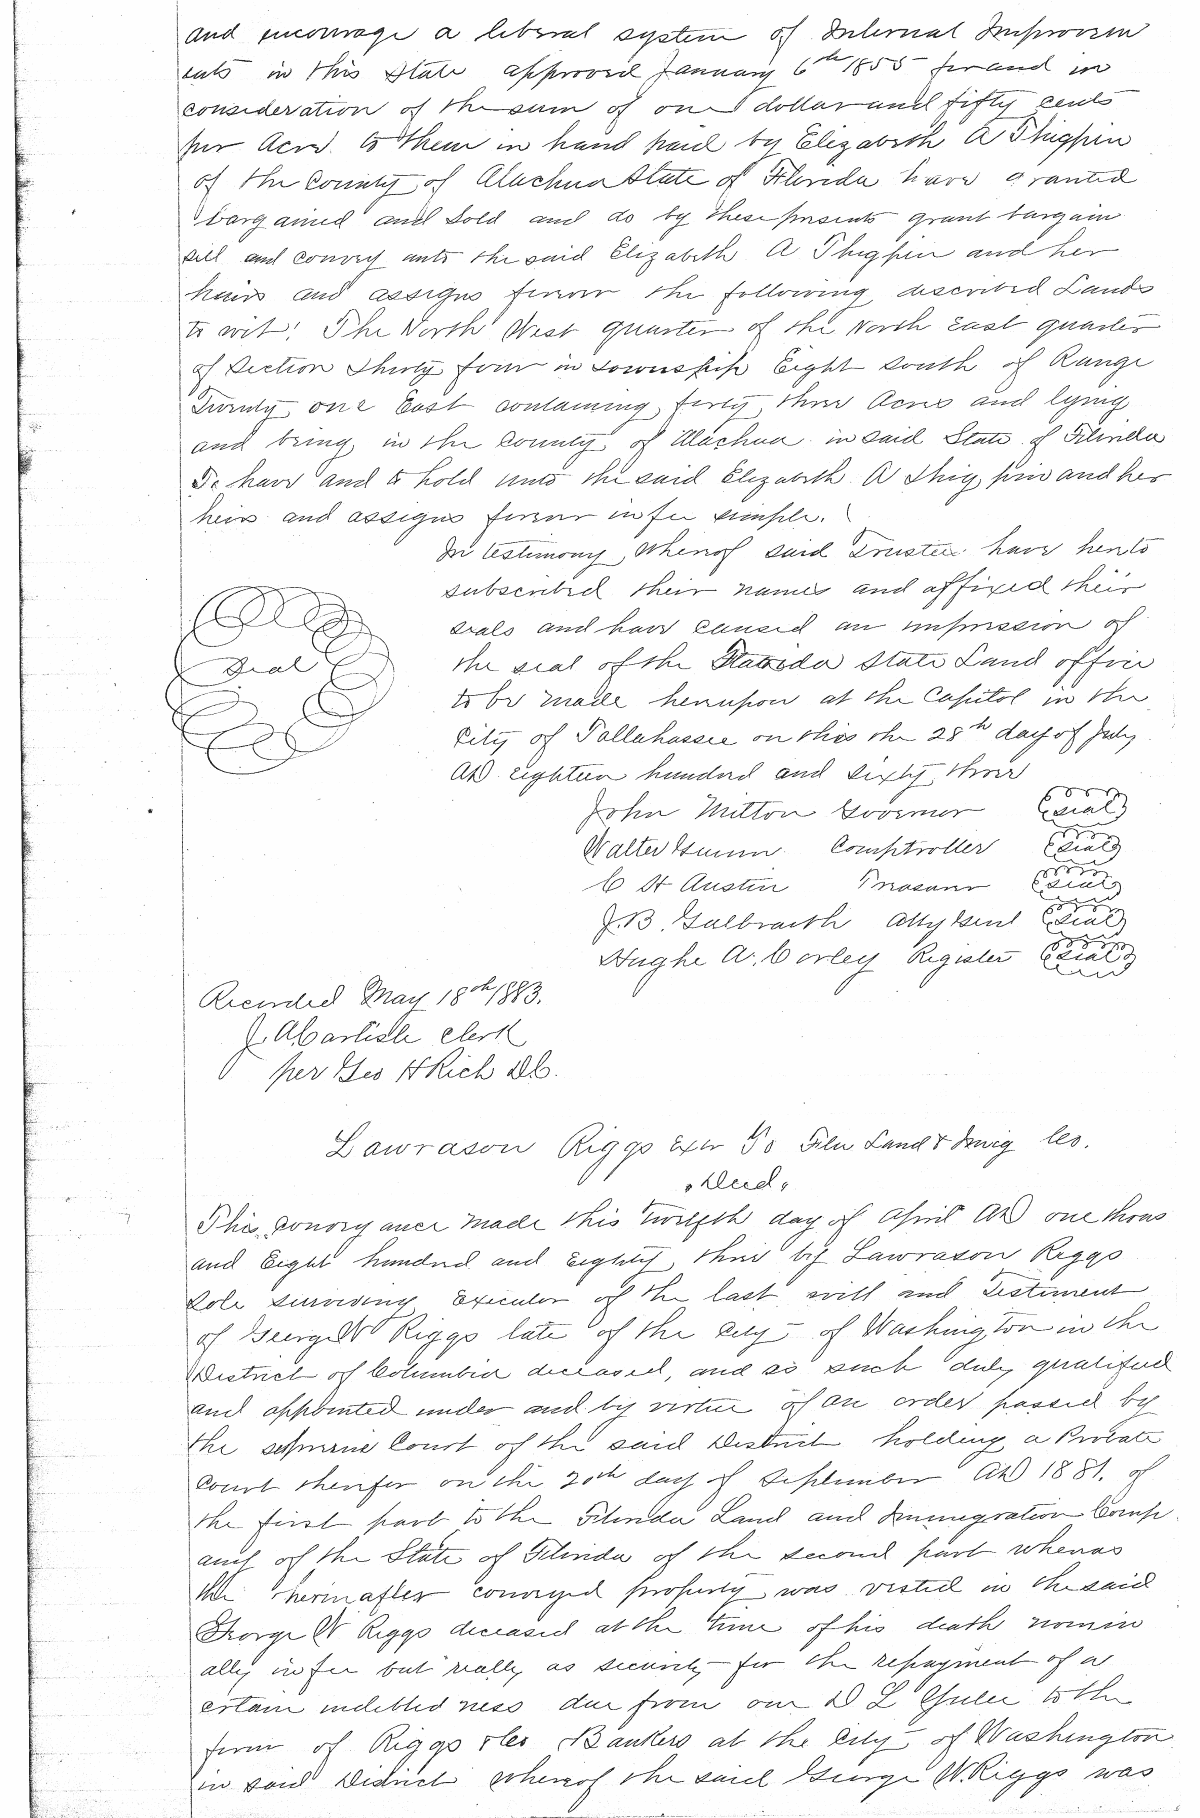 and encourage a liberal system of Internal Improvem
ents in this State approved January 6th 1855 for and in
consideration of the sum of one dollar and fifty cents
per Acre to them in hand paid by Elizabeth A Thigpin
of the County of Alachua State of Florida have granted
bargained and sold and do by these presents grant bargain
sell and convey unto the said Elizabeth A Thigpin and her
heirs and assigns forever the following described Lands
to wit: The North West quarter of the North East quarter
of Section Thirty four in Township Eight South of Range
Twenty one East containing forty three Acres and lying
and being in the County of Alachua in said State of Florida
To have and to hold unto the said Elizabeth A Thigpin and her
heirs and assigns forever in fee simple.
In testimony whereof said Trustees have hereto
subscribed their names and affixed their
seals and have caused an impression of
Seal
the seal of the Florida State Land office
to be made hereupon at the Capitol in the
City of Tallahassee on this the 28th day of July
AD eighteen hundred and Sixty three
John Milton Governor Seal
Walter Gwinn Comptroller Seal
C H Austin Treasurer Seal
J.B. Galbraith Atty Genl Seal
Hughe A. Corley Register Seal
Recorded May 18th 1883.
J. A Carlisle Clerk
per Geo H Rich DC.
Lawrason Riggs Extr To Fla Land & Imig Co.
Deed
This conveyance made this twelfth day of April AD one thous
and Eight hundred and Eighty three by Lawrason Riggs
Sole surviving Executor of the last will and Testiment
of George W Riggs late of the City of Washington in the
District of Columbia deceased, and as such duly qualified
and appointed under and by virtue of an order passed by
the supreme Court of the said District holding a Probate
Court therefor on the 20th day of September AD 1881. of
the first part to the Florida Land and Immigration Comp
any of the State of Florida of the second part whereas
the herinafter conveyed property was vested in the said
George W Riggs deceased at the time of his death nomin
ally in fee but really as security for the repayment of a
certain indebtedness due from one D L Yulee to the
firm of Riggs & Co Bankers at the City of Washington
in said District whereof the said George W. Riggs was